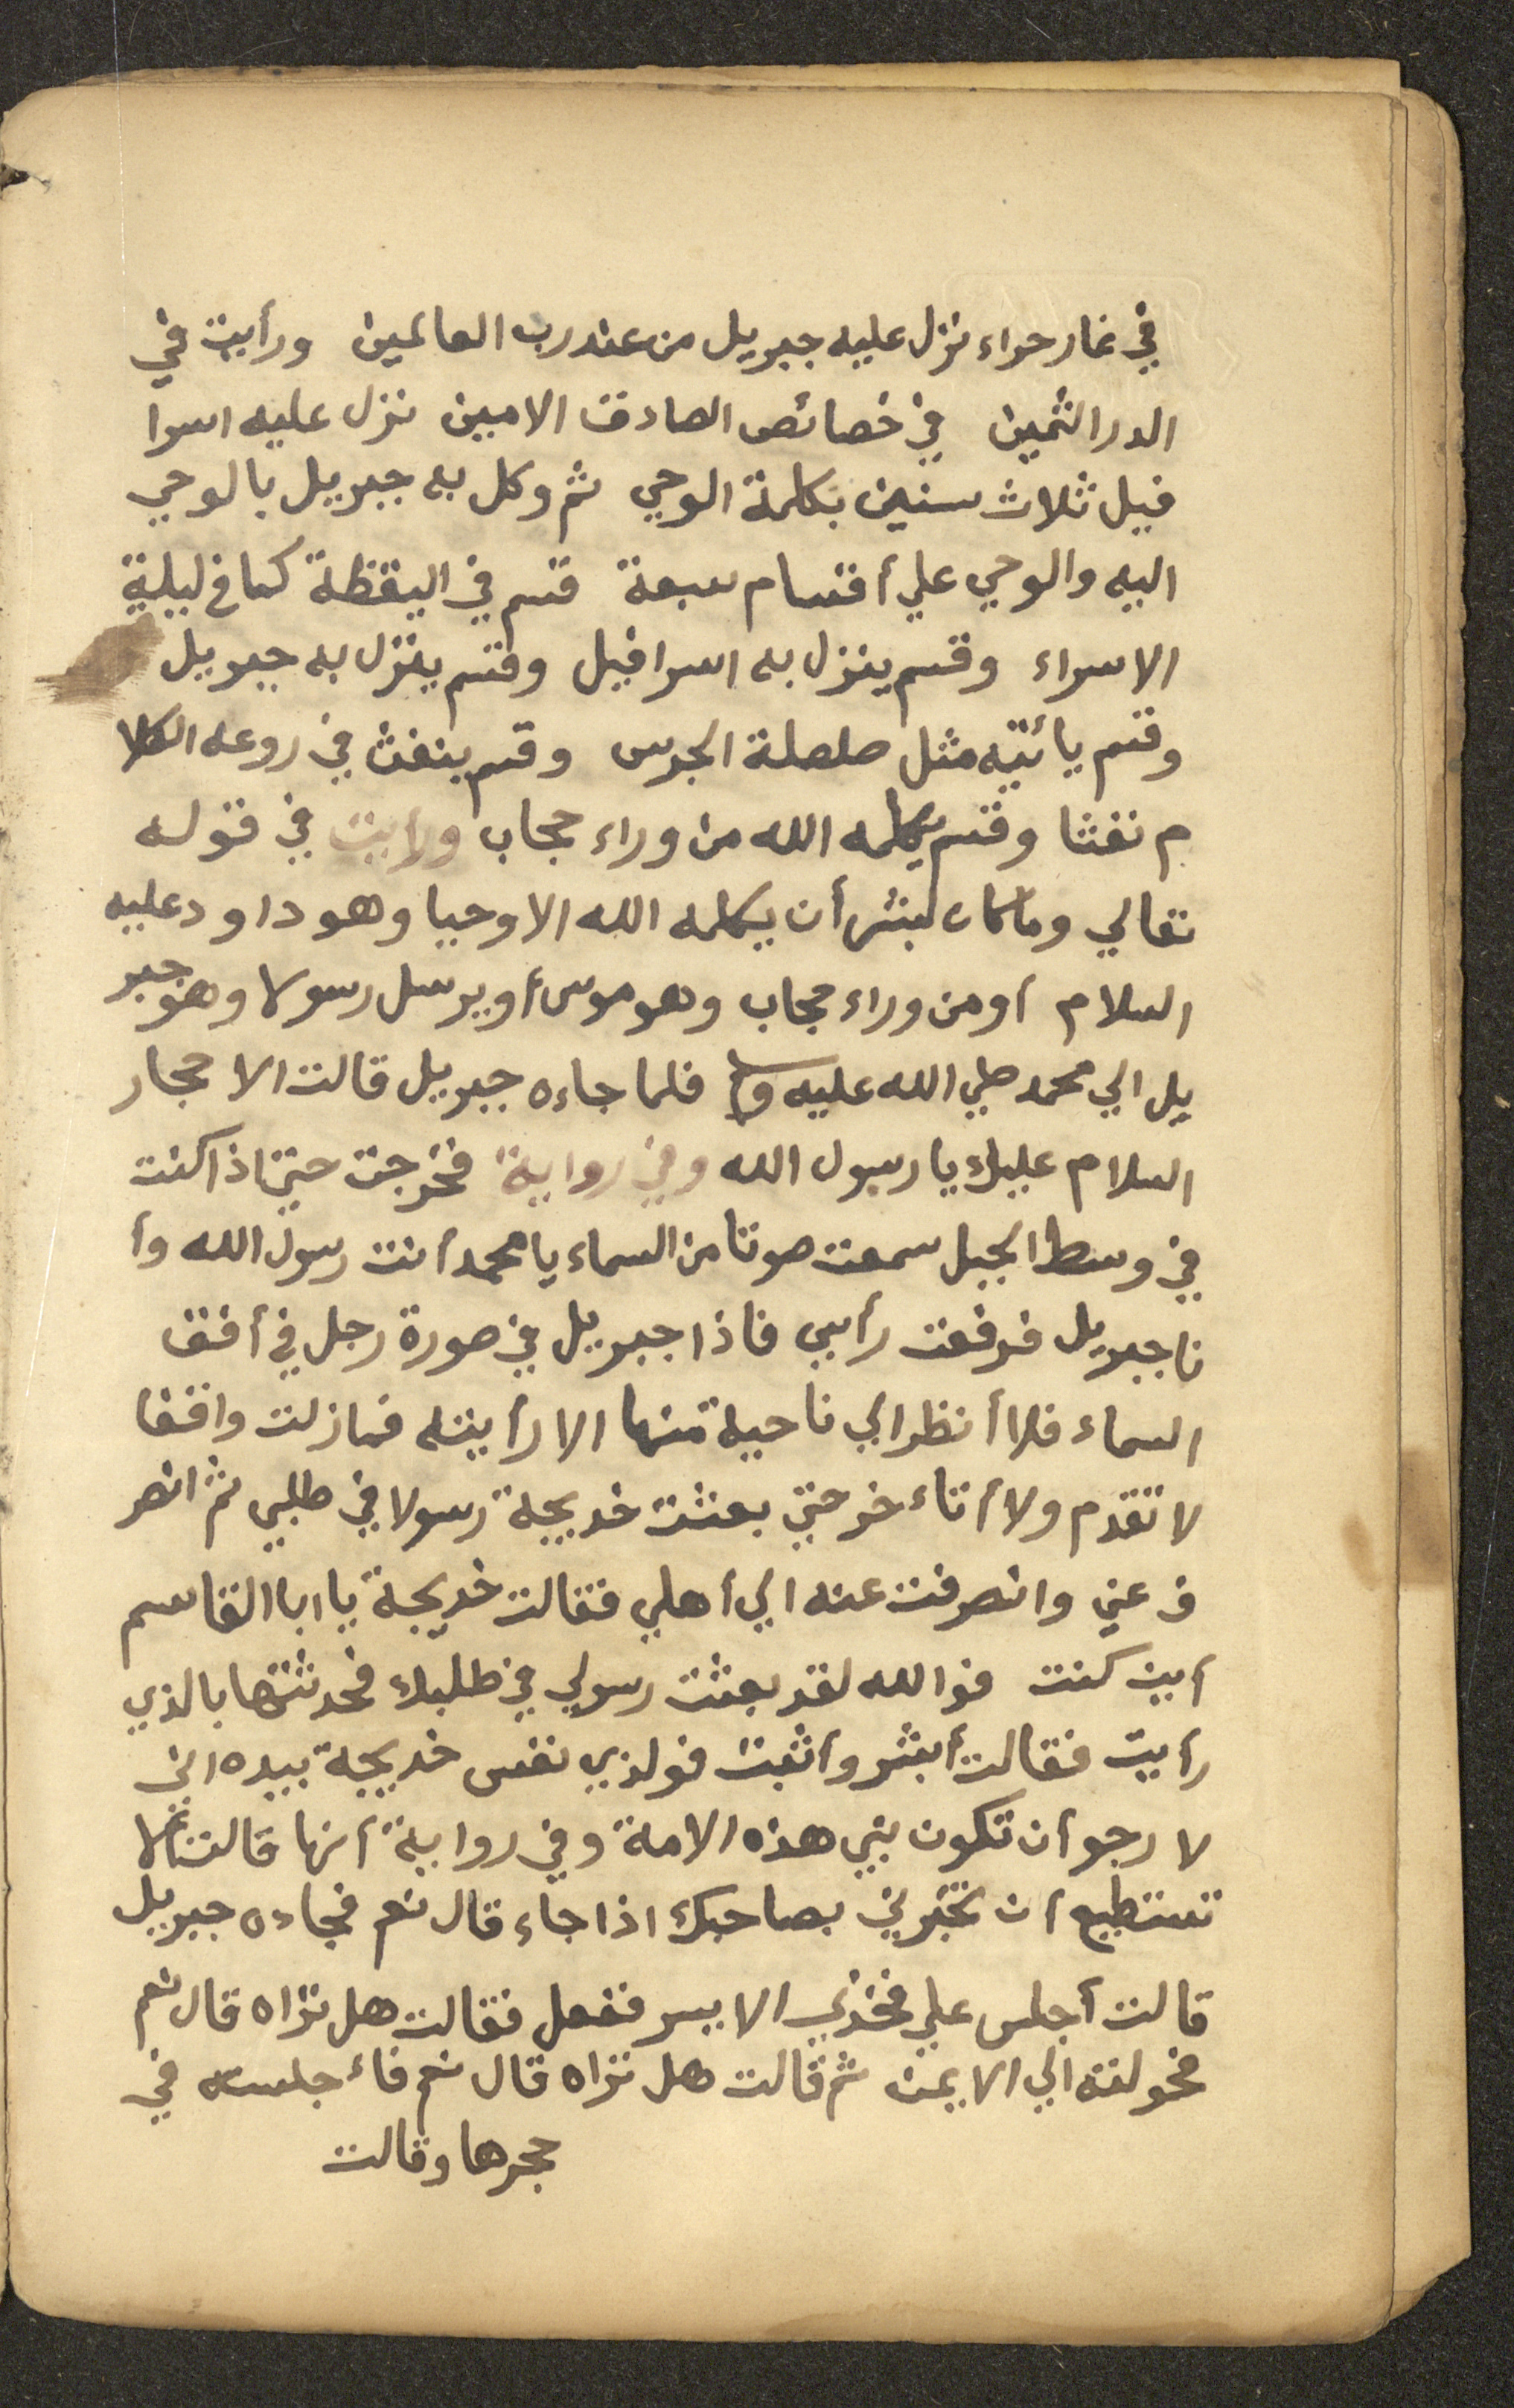 في غار حراء نزل عليه جبريل من عند رب العالمين ورأيت في
الدر الثمين في خصائص الصادق الامين نزل عليه اسرا
فيل ثلاث سنين بكلمة الوحي ثم وكل به جبريل بالوحي
اليه والوحي علي أقسام سبعة قسم في اليقظة كما في ليلة
الاسراء وقسم ينزل به اسرافيل وقسم ينزل به جبريل
وقسم يأتيه مثل صلصلة الجرس وقسم ينفث في روعه الكلا
م نفثا وقسم يكلمه الله من وراء حجاب ورأيت في قوله
تعالي وما كان لبشر أن يكلمه الله الا وحيا وهو داود عليه
السلام أو من وراء حجاب وهو موسى أو يرسل رسولا وهو جبر
يل الي محمد صلي الله عليه وسلم فلما جاءه جبريل قالت الاحجار
السلام عليك يا رسول الله وفي رواية فخرجت حتى اذا كنت
في وسط الجبل سمعت صوتا من السماء يا محمد أنت رسول الله وأ
نا جبريل فرفعت رأسي فاذا جبريل في صورة رجل في أفق
السماء فلا أنظر الي ناحية منها الا رأيته فما زلت واقفا
لا تقدم ولا أتاء خر حتي بعثت خديجة رسولا في طلبي ثم انصر
ف عني وانصرفت عنه الي أهلي فقالت خديجة يا ابا القاسم
أين كنت فوالله لقد بعثت رسولي في طلبك فحدثتها بالذي
رأيت فقالت أبشر وأثبت فولذي نفس خديجة بيده اني
لا رجو أن تكون نبي هذه الامة وفي رواية أنها قالت له
تستطيع أن تخبرني بصاحبك اذا جاء قال نعم فجاءه جبريل
قالت أجلس علي فخذي الايسر ففعل فقالت هل تراه قال نعم
فحولته الي الايمن ثم قالت هل تراه قال نعم فاء جلسته في
حجرها وقالت